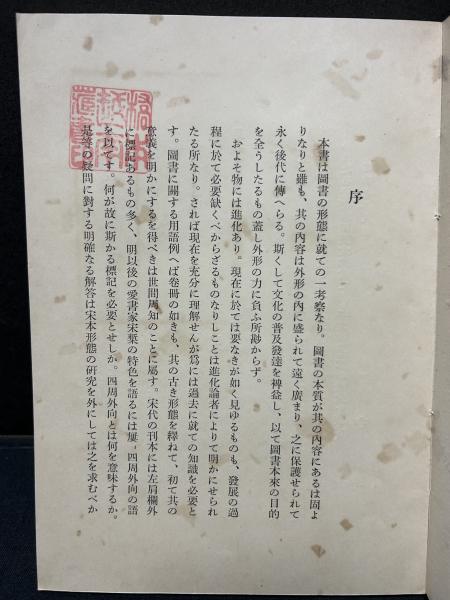 序
本書は圖書の形態に就ての一考察なり。圖書の本質が其の内容にあるは固よ
りなりと雖も、其の内容は外形の内に盛られて遠く廣まり、之に保護せられて
永く後代に傳へらる。斯くして文化の普及發達を裨益し、以て圖書本來の目的
を全うしたるもの蓋し外形の力に負ふ所尠からず。
およそ物には進化あり。現在に於ては要なきが如く見ゆるものも、發展の過
程に於て必要缺くべからざるものなりしことは進化論者によりて明かにせられ
たる所なり。されば現在を充分に理解せんが爲には過去に就ての知識を必要と
す。圖書に關する用語例へば卷冊の如きも、其の古き形態を釋ねて、初て其の
意義を明かにするを得べきは世間周知のことに屬す。宋代の刊本には左肩欄外
に標記あるもの多く、明以後の愛書家宋槧の特色を語るには屢〻四周外向の語
を以てす。何が故に斯かる標記を必要とせしか。四周外向とは何を意味するか。
是等の疑問に對する明確なる解答は宋本形態の研究を外にしては之を求むべか